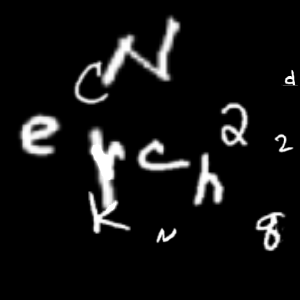 N
C
d
e r c h 2 2
K N 8